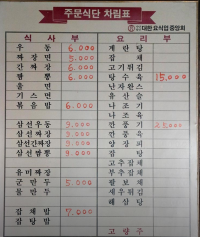 주문식단 차림표
대한요식업중앙회
식사부 요리부
우동 6.000 계란탕
짜장면 5.000 잡채
간짜장 6.000 고기튀김
짬뽕 6.000 탕수육 15.000
울면 난자완스
기스면 유산슬
볶음밥 6.000 나조기
나조육
삼선우동 깐풍기
삼선짜장 깐풍육
삼선간짜장 양장피
삼선짬뽕 잡탕
고추잡채
유미짜장 부추잡채
군만두 5.000 팔보채
물만두 새우튀김
해삼탕
잡채밥 7.000
잡탕밥 고량주